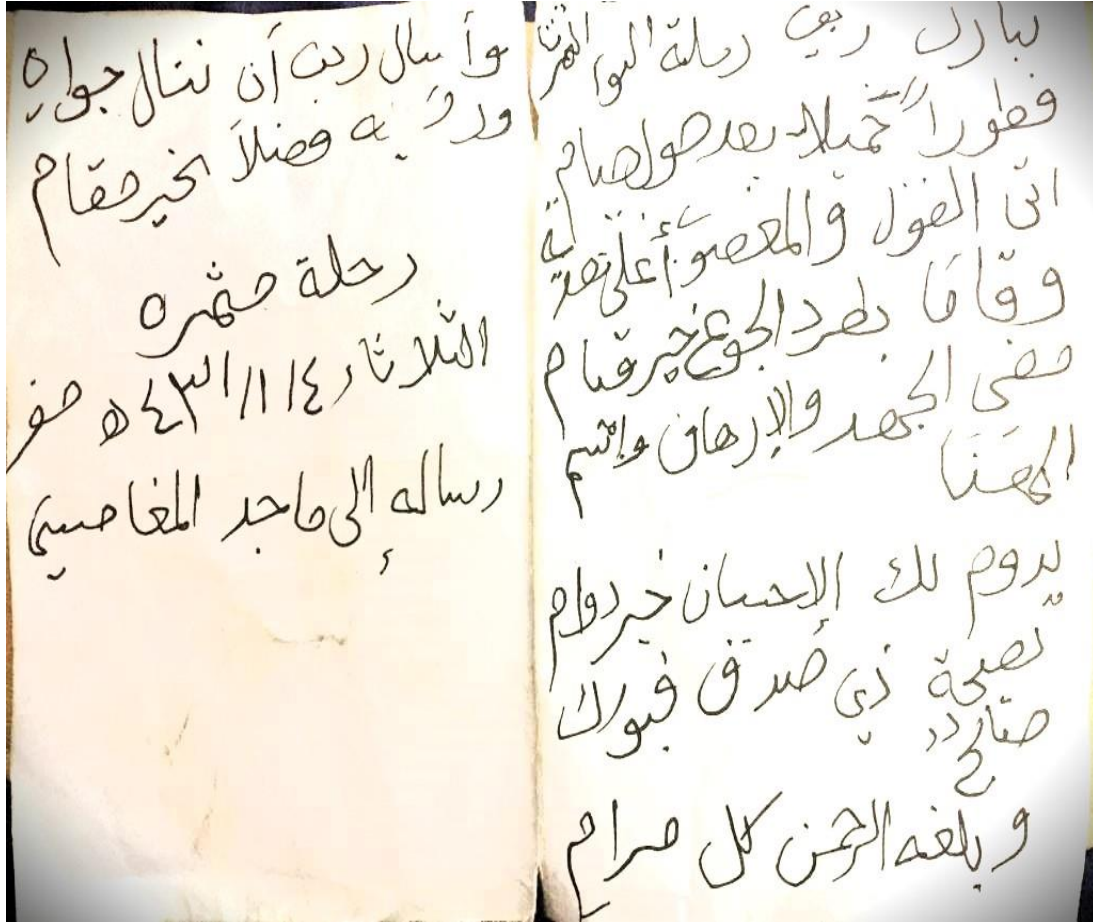 تبارك ربي رحلة البوا
فطوراً جميلاً بعد صيام
اتى الفول والمعصوب أغلى
وقاما بطرد الجوع خير قيام
مضى الجهد والإرهاق وابتسم
الهنا
يدوم لك الإحسان خير دوام
نصيحة ذي صدق فبورك
صالح
وبلغه الرحمن كل مرام
وأسأل ربي أن ننال جواره
فضلاً بخير مقام
رحلة مثمره
الثلاثاء ١/١٤/ ١٤٣ه صفر
رساله إلى ماجد المغامسي